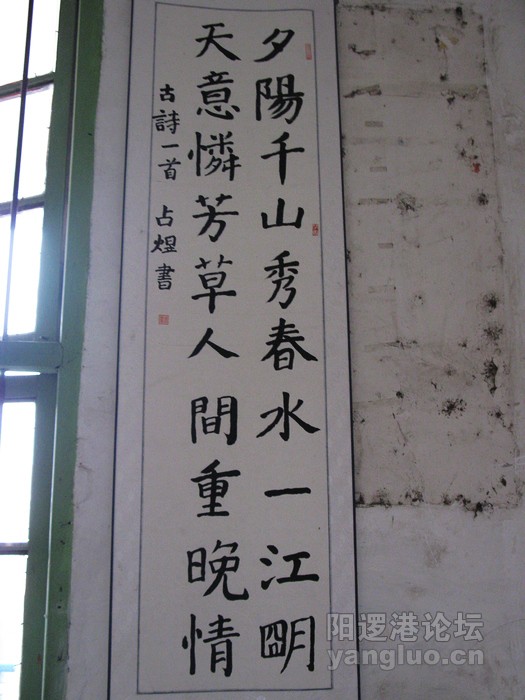 夕陽千山秀春水一江明
天意憐芳草人間重晚情
古詩一首 占煜書
阳逻港论坛
yangluo.cn